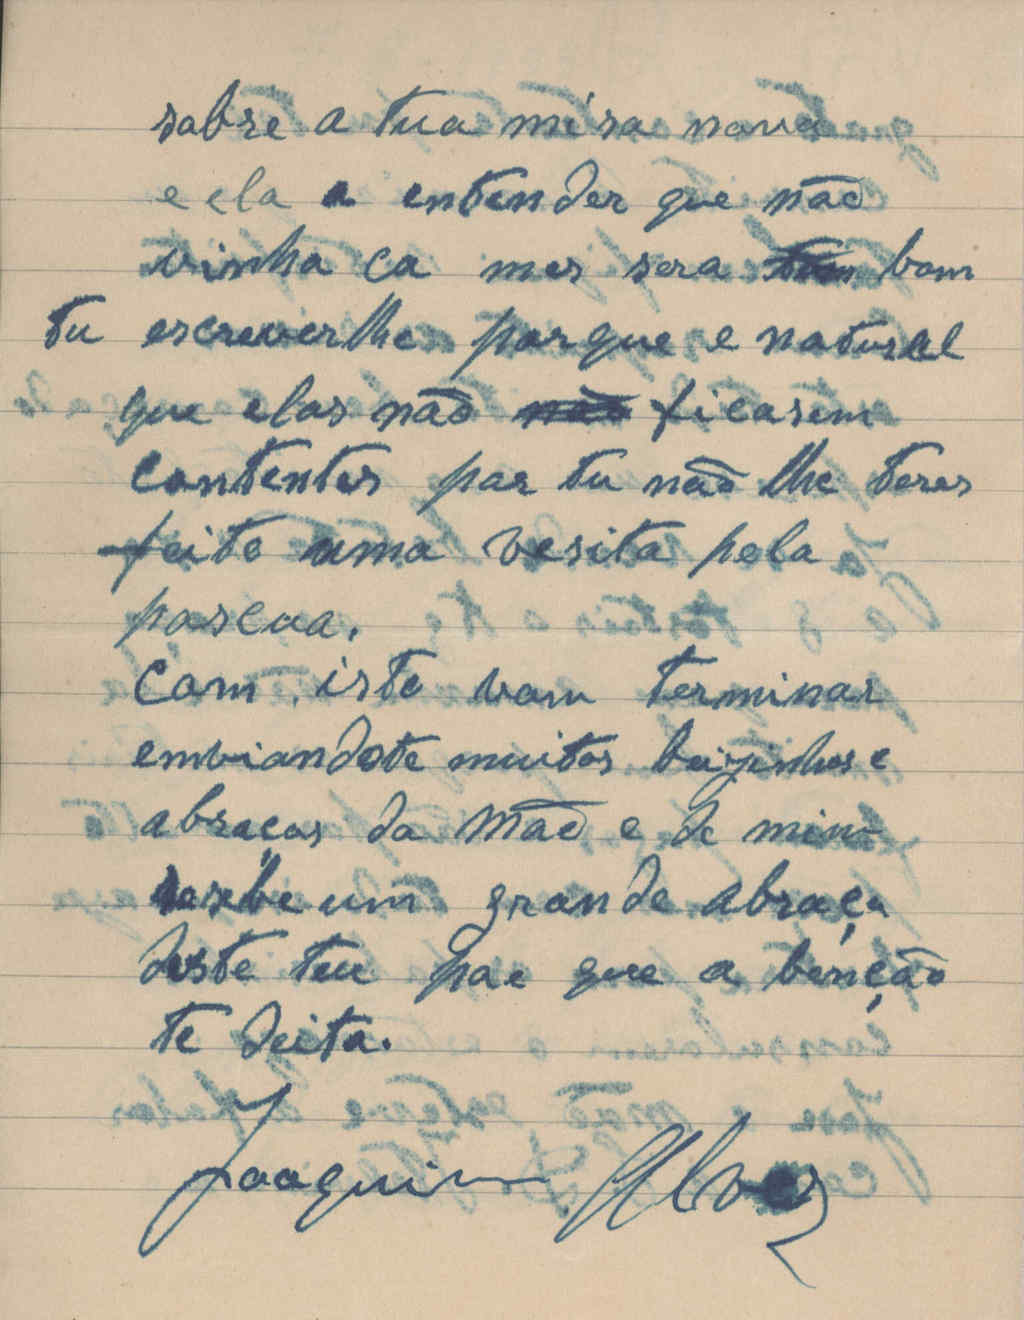 sobre a tua misa nova
e ela a entender que não
vinha ca mas sera bom
tu escreverlhe porque e natural
que elas não ficasem
contentes por tu não lhe teres
feito uma vesita pela
pascua.
Com isto vou terminar
enviandote muitos beijinhos e
abraços da Mãe e de mim
recebe um grande abraço
deste teu pae que a benção
te deita.
Joaquim Alves